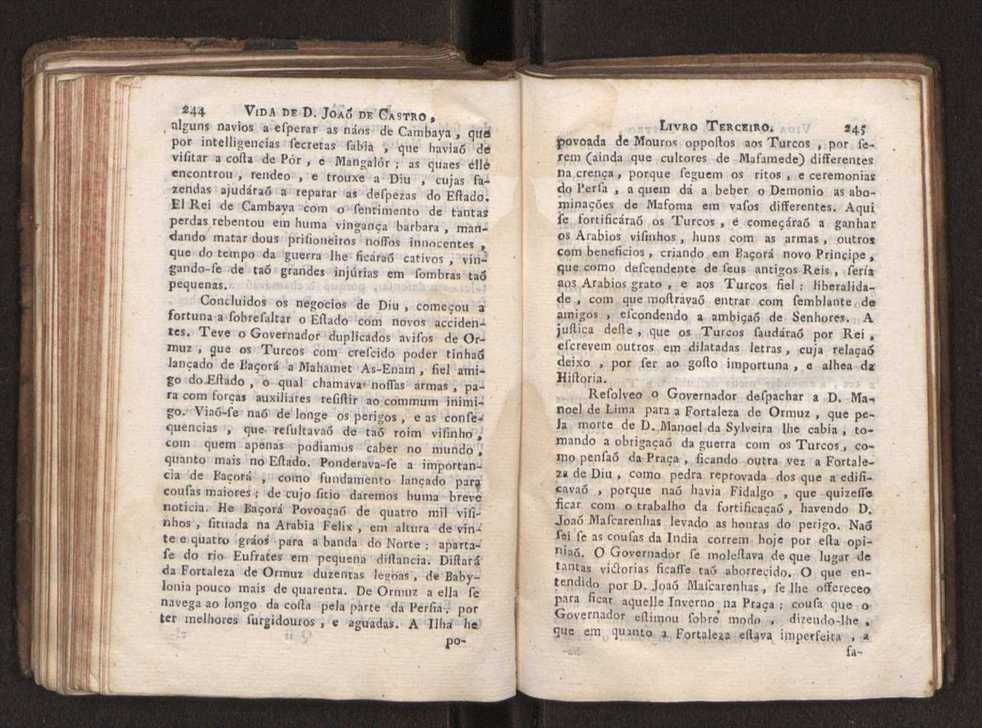 244 VIDA DE D. JOAÕ DE CASTRO,
alguns navios a eſperar as náos de Cambaya, que
por intelligencias ſecretas ſabia, que haviaõ de
viſitar a coſta de Pór, e Mangalór; as quaes elle
encontrou, rendeo, e trouxe a Diu, cujas fa-
zendas ajudáraõ a reparar as deſpezas do Eſtado.
El Rei de Cambaya com o ſentimento de tantas
perdas rebentou em huma vingança barbara, man-
dando matar dous priſioneiros noſſos innocentes,
que do tempo da guerra lhe ficáraõ cativos, vin-
gando-ſe de taõ grandes injúrias em ſombras taõ
pequenas.
Concluidos os negocios de Diu, começou a
fortuna a ſobreſaltar o Eſtado com novos acciden-
tes. Teve o Governador duplicados aviſos de Or-
muz, que os Turcos com creſcido poder tinhaõ
lançado de Baçorá a Mahamet As-Enam, fiel ami-
go do Eſtado, o qual chamava noſſas armas, pa-
ra com forças auxiliares reſiſtir ao commum inimi-
go. Viaõ-ſe naõ de longe os perigos, e as conſe-
quencias, que reſultavaõ de taõ roim viſinho,
com quem apenas podiamos caber no mundo,
quanto mais no Eſtado. Ponderava-ſe a importan-
cia de Baçorá, como fundamento lançado para
couſas maiores; de cujo ſitio daremos huma breve
noticia. He Baçorá Povoaçaõ de quatro mil viſi-
nhos, ſituada na Arabia Felix, em altura de vin-
te e quatro gráos para a banda do Norte; aparta-
ſe do rio Eufrates em pequena diſtancia. Diſtará
da Fortaleza de Ormuz duzentas legoas, de Baby-
lonia pouco mais de quarenta. De Ormuz a ella ſe
navega ao longo da coſta pela parte da Perſia, por
ter melhores ſurgidouros, e aguadas. A Ilha he
po-
LIVRO TERCEIRO. 245
povoada de Mouros oppoſtos aos Turcos, por ſe-
rem (ainda que cultores de Mafamede) differentes
na crença, porque ſeguem os ritos, e ceremonias
do Perſa, a quem dá a beber o Demonio as abo-
minações de Mafoma em vaſos differentes. Aqui
ſe fortificáraõ os Turcos, e começáraõ a ganhar
os Arabios viſinhos, huns com as armas, outros
com beneficios, criando em Baçorá novo Principe,
que como deſcendente de ſeus antigos Reis, ſeria
aos Arabios grato, e aos Turcos fiel: liberalida-
de, com que moſtravaõ entrar com ſemblante de
amigos, eſcondendo a ambiçaõ de Senhores. A
juſtiça deſte, que os Turcos ſaudáraõ por Rei,
eſcrevem outros em dilatadas letras, cuja relaçaõ
deixo, por ſer ao goſto importuna, e alhea da
Hiſtoria.
Reſolveo o Governador deſpachar a D. Ma-
noel de Lima para a Fortaleza de Ormuz, que pe-
la morte de D. Manoel da Sylveira lhe cabia, to-
mando a obrigaçaõ da guerra com os Turcos, co-
mo penſaõ da Praça, ficando outra vez a Fortale-
za de Diu, como pedra reprovada dos que a edifi-
cavaõ, porque naõ havia Fidalgo, que quizeſſe
ficar com o trabalho da fortificaçaõ, havendo D.
Joaõ Maſcarenhas levado as honras do perigo. Naõ
ſei ſe as couſas da India correm hoje por eſta opi-
niaõ. O Governador ſe moleſtava de que lugar de
tantas victorias ficaſſe taõ aborrecido. O que en-
tendido por D. Joaõ Maſcarenhas, ſe lhe offereceo
para ficar aquelle Inverno na Praça; couſa que o
Governador eſtimou ſobre modo, dizendo-lhe,
que em quanto a Fortaleza eſtava imperfeita, a
ſa-